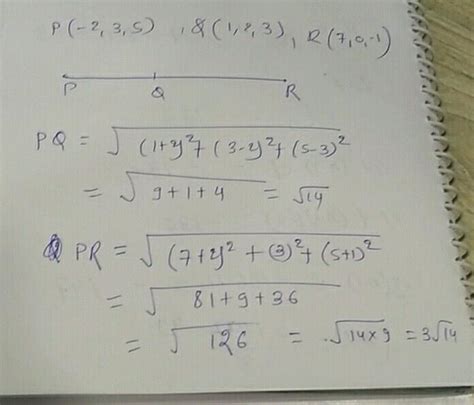 P(-2,3,5) , Q(1,2,3), R(7,0,-1)
P Q R
PQ = √((1+2)²+(3-2)²+(5-3)²)
= √(9+1+4) = √14
PR = √((7+2)²+(3)²+(5+1)²)
= √(81+9+36)
= √126 = √(14×9) = 3√14